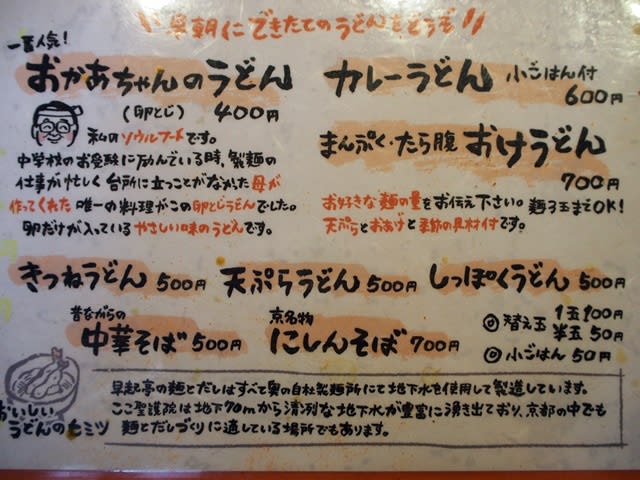 早朝にできたてのうどんをどうぞ
一番人気!
おかあちゃんのうどん
(卵とじ) 400円
私のソウルフードです。
中学校のお受験に励んでいる時、製麺の
仕事が忙しく台所に立つことがなかった母が
作ってくれた唯一の料理がこの卵とじうどんでした。
卵だけが入っているやさしい味のうどんです。
カレーうどん 小ごはん付
600円
まんぷく・たら腹 おけうどん
700円
お好きな麺の量をお伝え下さい。麺3玉までOK!
天ぷらとおあげと季節の具材付です。
きつねうどん 500円 天ぷらうどん 500円 しっぽくうどん 500円
昔ながらの
中華そば 500円
京名物
にしんそば 700円
◎替え玉 1玉100円
半玉50円
◎小ごはん 50円
おいしい
うどんのヒミツ
早起亭の麺とだしはすべて奥の自社製麺所にて地下水を使用して製造しています。
ここ聖護院は地下70mから清冽な地下水が豊富に湧き出ており、京都の中でも
麺とだしづくりに適している場所でもあります。